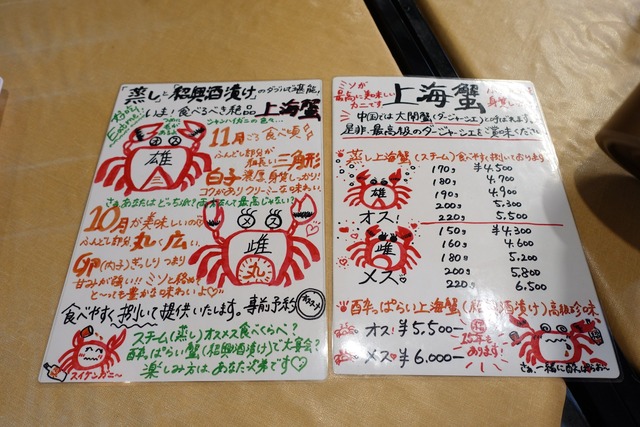 「蒸し」と「紹興酒漬け」のダブルで堪能!
いま!食べるべき絶品 上海蟹
シャンハイガニの色々…
11月ごろ食べ頃
ふんどし部分が
細長い三角形
白子 濃厚、身質しっかり!
コクがありクリーミーな味わい。
雄
さぁあなたはどっち派?両方なんて最高じゃない?
10月が美味しいの
ふんどし部分 丸く広い。
卵(内子)ぎっしりつまり
甘みが強い!!ミソと絡めて
と〜っても豊かな味わいよ♡
雌
丸
食べやすく捌いて提供いたします。事前予約 オススメ
ステーム(蒸し)オススメ食べくらべ?
酔っぱらい蟹(紹興酒漬け)で大宴会?
楽しみ方はあなた次第です♡
スイケンガニ〜
ミソが
最高に美味しい
カニです
上海蟹
中国では大閘蟹(ダージャーエ)と呼ばれます。
是非最高級のダージャーエをご賞味ください
蒸し上海蟹(スチーム)食べやすく捌いております
雄
オス!
170g ¥4,500
180g 4,700
190g 4,900
200g 5,300
220g 5,500
雌
メス♡
150g ¥4,300
160g 4,600
180g 5,200
200g 5,800
220g 6,500
酔っぱらい上海蟹(紹興酒漬け)高級珍味
オス! ¥5,500-
メス♡ ¥6,000-
15年も
あります!
さぁ、一緒に酔っぱらお〜